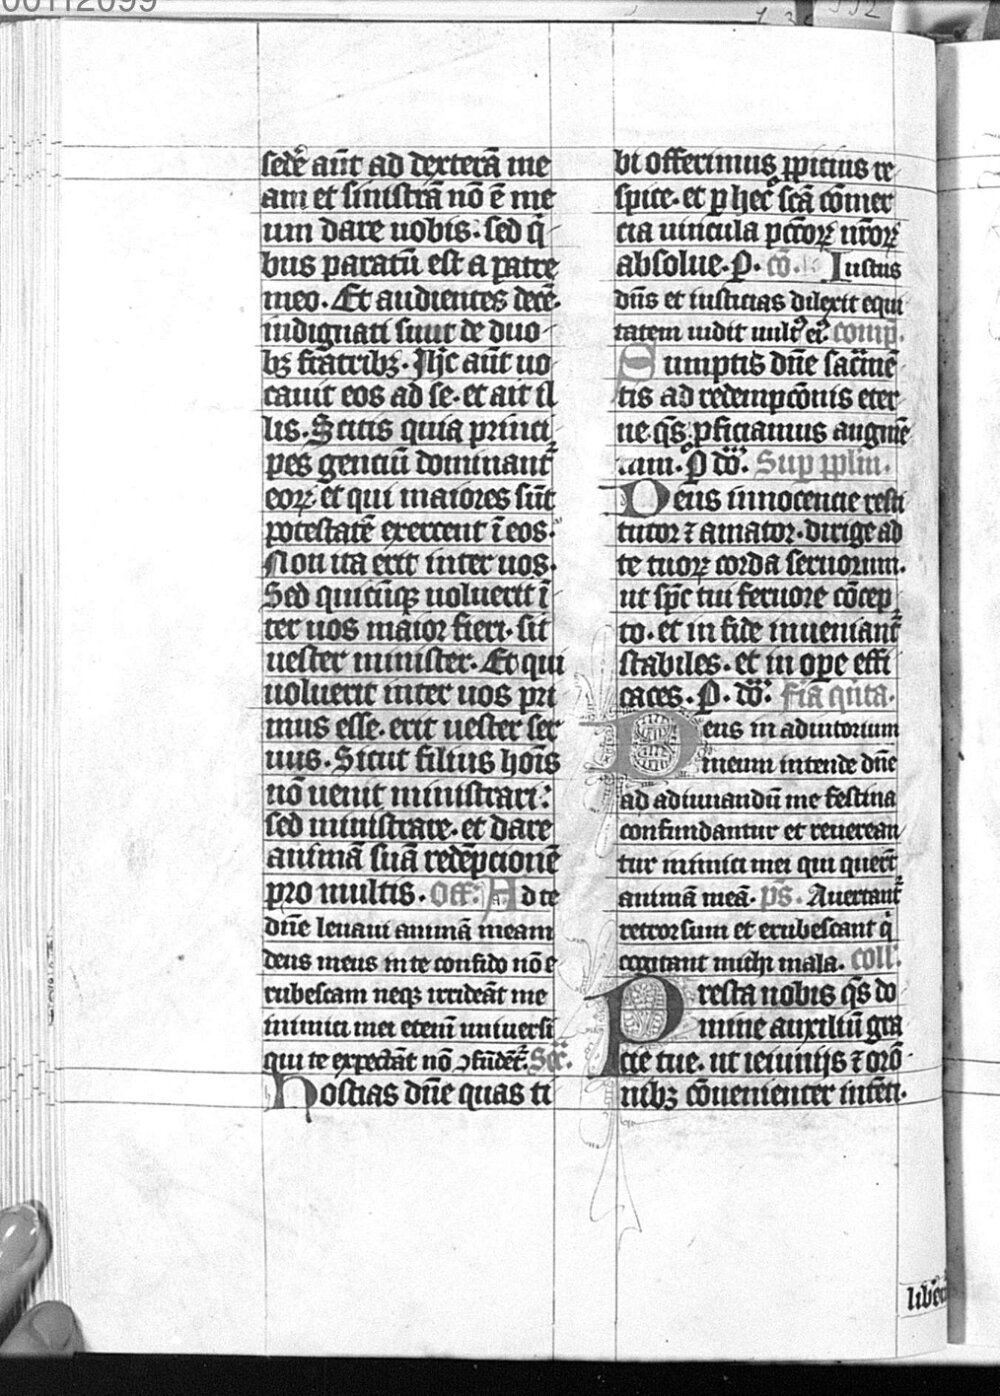 sedē aūt ad dexterā me
am et sinistrā nō ē me
um dare uobis. sed q̄
bus paratū est a patre
meo. Et audientes decē.
indignati sunt de duo
bꝫ fratribꝫ. Ihc aūt uo
cauit eos ad se. et ait il
lis. Scitis quia princi
pes genciū dominant᷑
eoꝝ. et qui maiores sūt
potestatē exercent ī eos.
Non ita erit inter uos.
Sed quicūqꝫ uoluerit ī
ter uos maior fieri. sit
uester minister. Et qui
uoluerit inter uos pri
mus esse. erit uester ser
uus. Sicut filius hoīs
nō uenit ministrari:
sed ministrare. et dare
animā suā redēpcionē
pro multis. Off. Ad te
dn̄e leuaui animā meam
deus meus in te confido nō e
rubescam neqꝫ irrideāt me
inimici mei etenī uniuersi
qui te expectāt nō ↄfūdēt᷑. Sec̄.
Hostias dn̄e quas ti
bi offerimus ꝓpicius re
spice. et ꝑ hec scā cōmer
cia uincula pctōꝝ nr̄oꝝ
absolue. P. cō. Iustus
dn̄s et iusticias dilexit equi
tatem uidit uult᷒ ei᷒. comp̄.
Sumptis dn̄e sac̄mē
tis ad redempcōnis eter
ne. qs̄. ꝓficiamus augmē
tum. P dō. Sup pplm.
Deus innocencie resti
tutor ⁊ amator. dirige ad
te tuoꝝ corda seruorum.
ut sp̄c tui feruore cōcep
to. et in fide inueniant᷑
stabiles. et in oꝑe effi
caces. P. dō. fīa qn̄ta.
Deus in adiutorium
meum intende dn̄e
ad adiuuandū me festina
confundantur et reuerean
tur inimici mei qui querūt
animā meā. ps̄. Auertant᷑
retrorsum et erubescant q̇
cogitant michi mala. coll.
Presta nobis qs̄ do
mine auxiliū gra
cie tue. ut ieiunijs ⁊ orō
nibꝫ cōuenienter intēti.